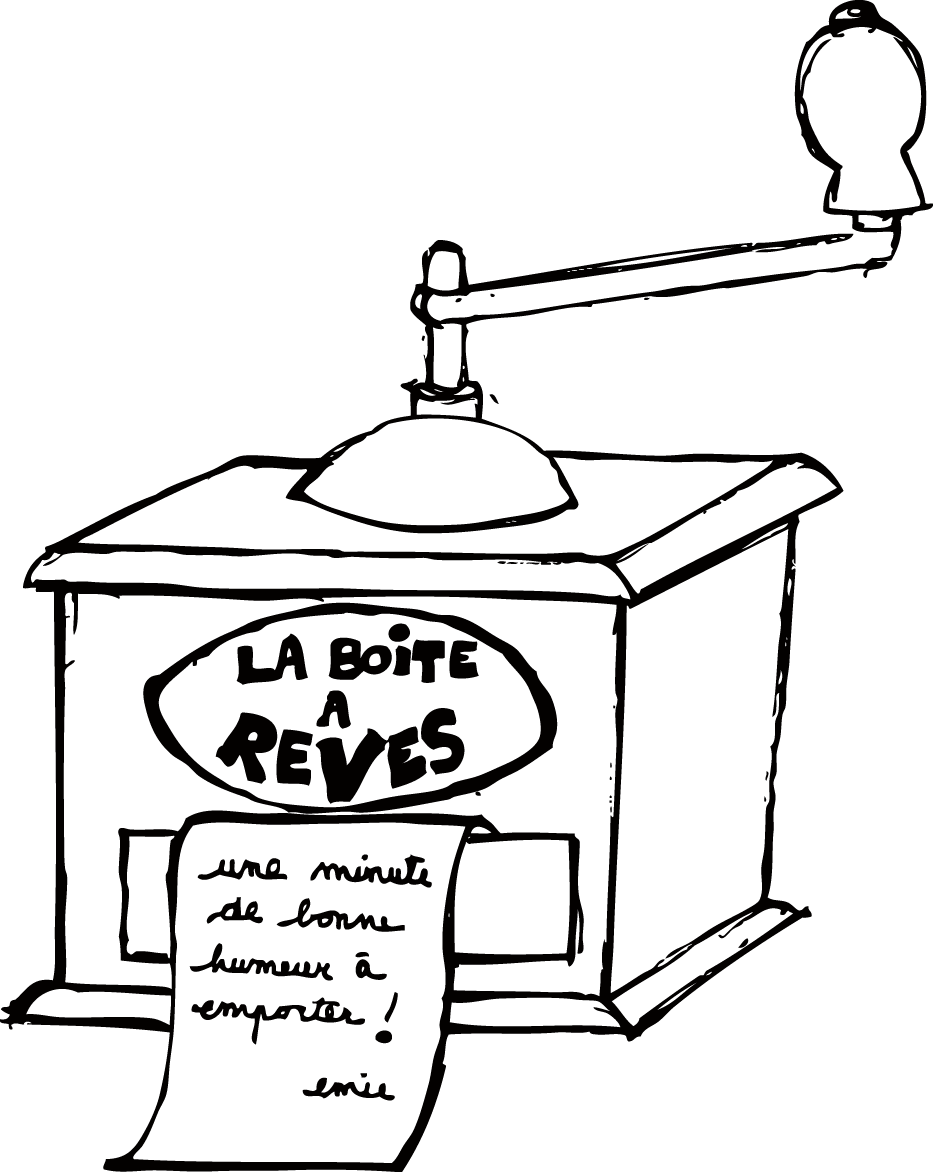 LA BOiTE
A
REVES
une minute
de bonne
humeur à
emporter !
emie